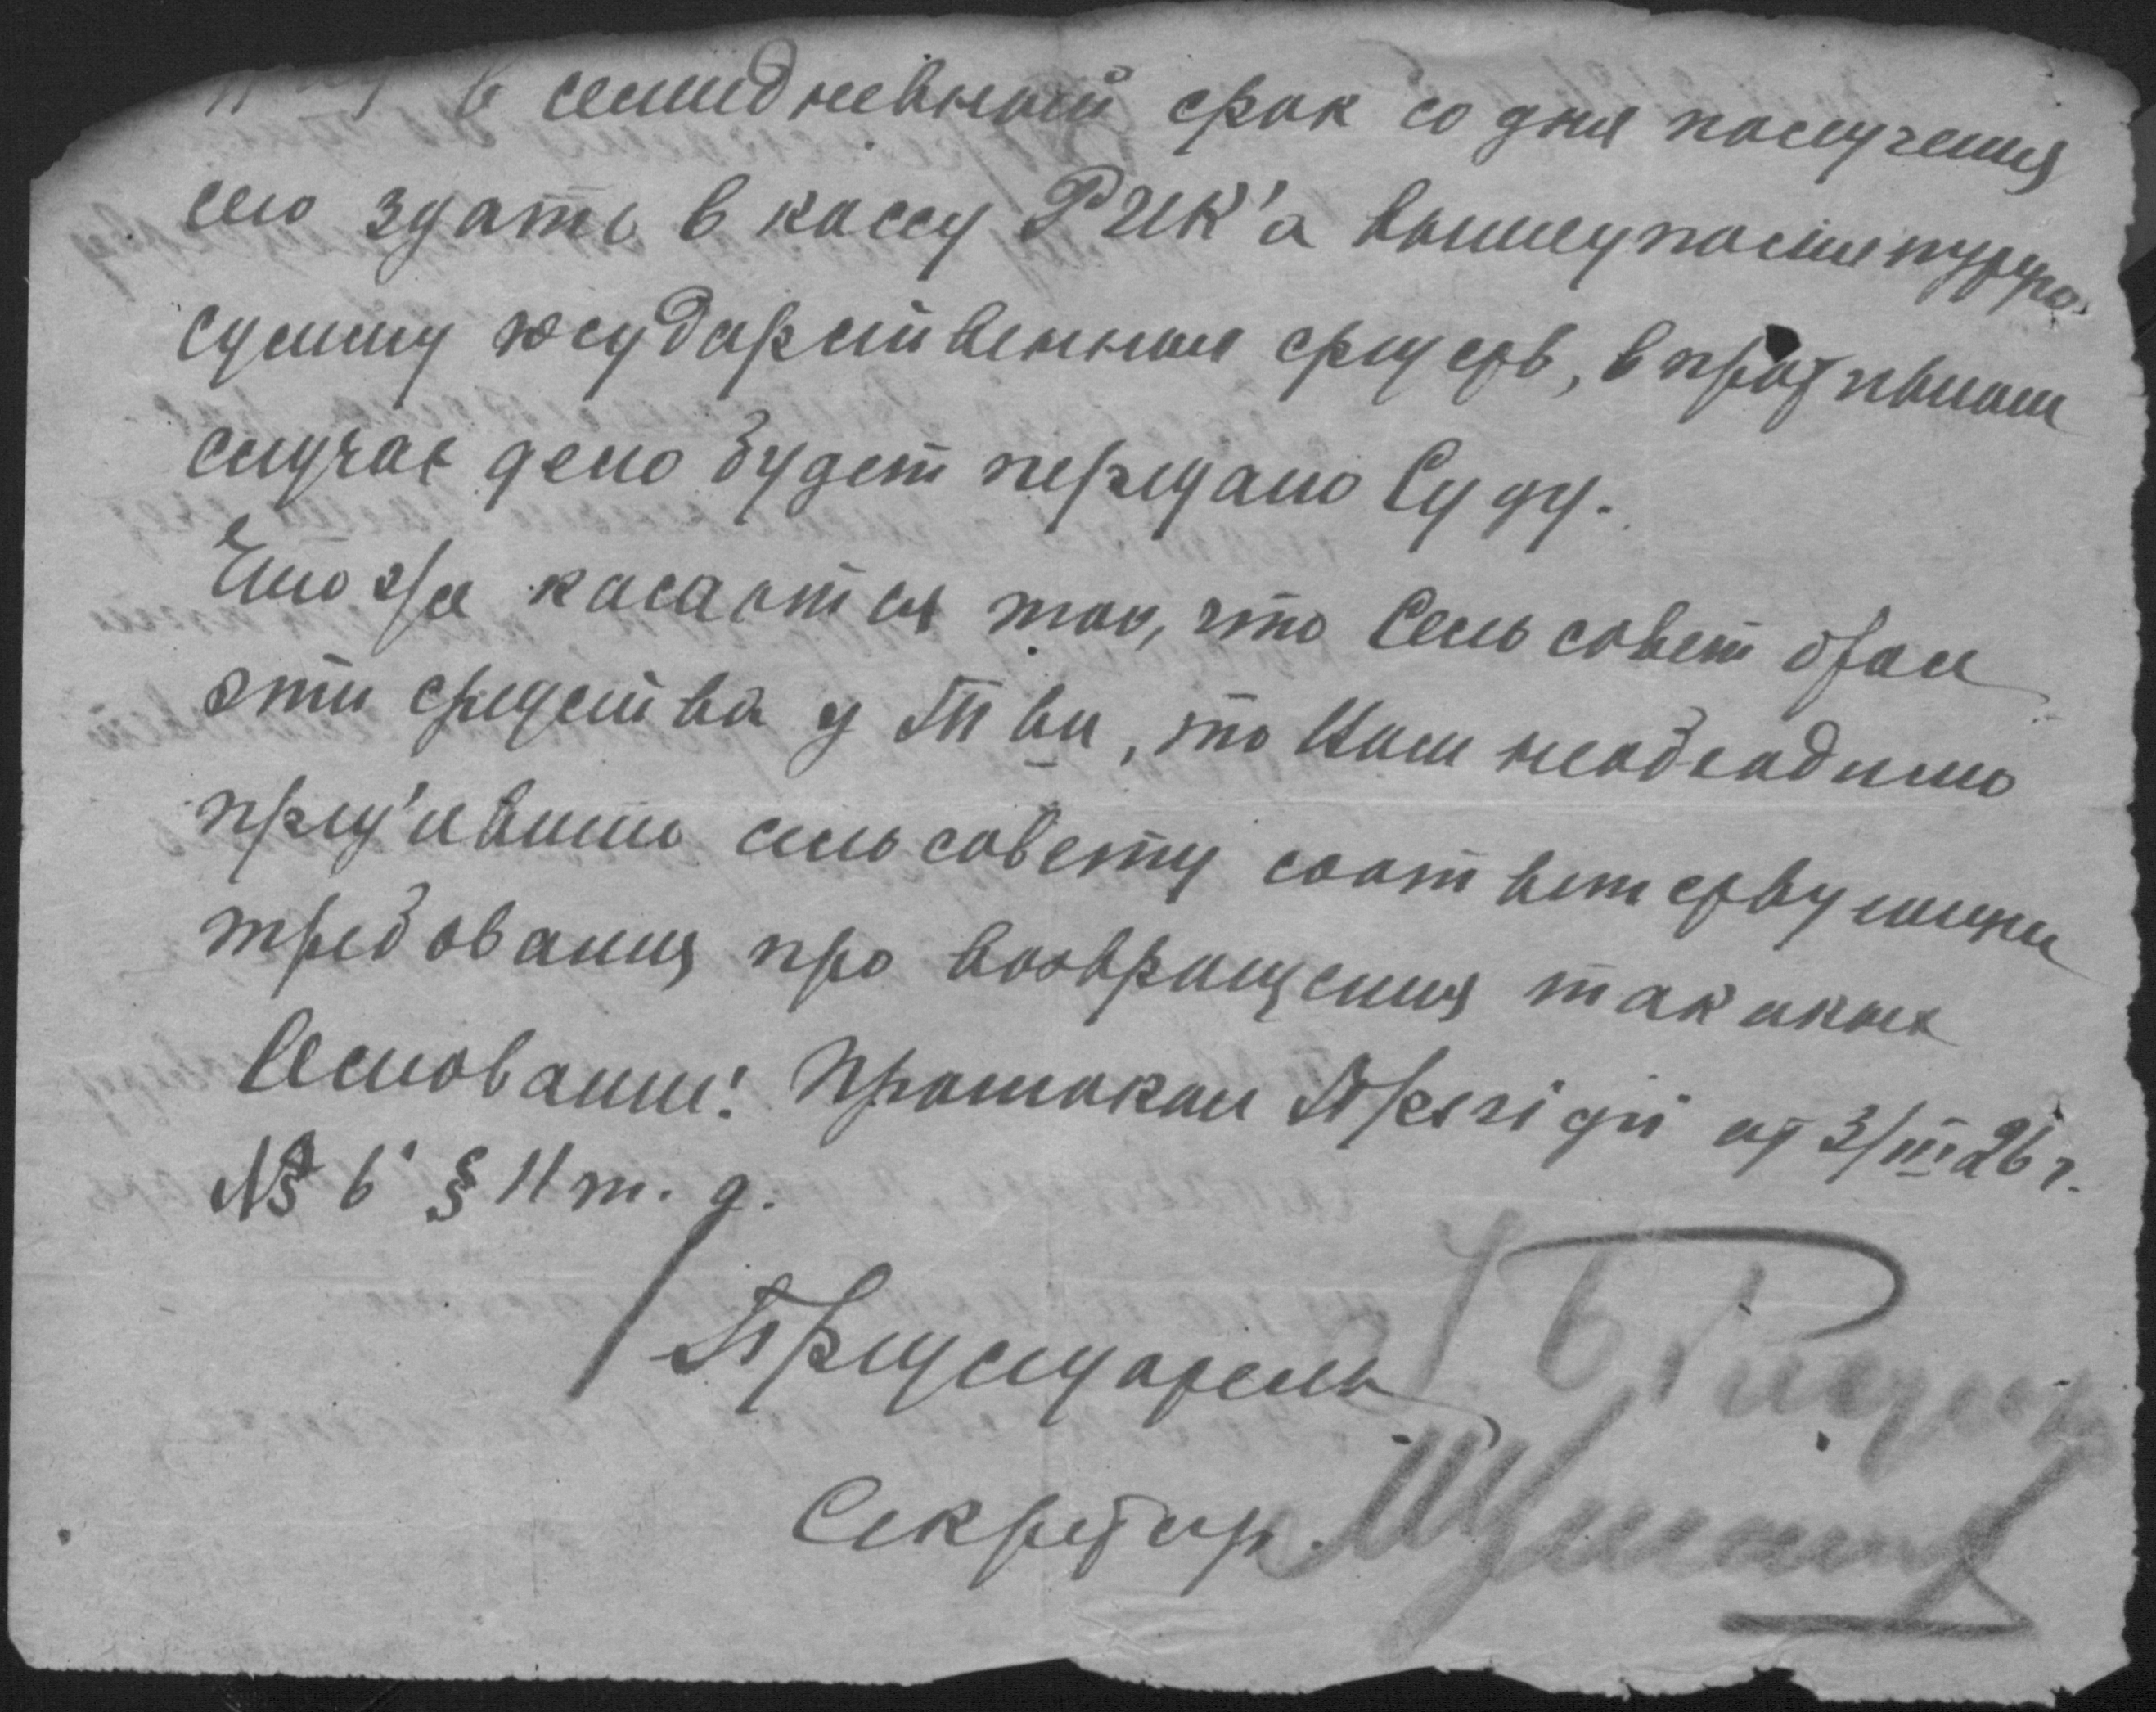 в семидневный срок со дня получения
сего здать в кассу РИК'а вышеупомянутую
сумму государственных средств, в противном
случае дело будет передано Суду.
Что же касается того, что Сельсовет брал
эти средства у Т-ва, то Вам необходимо
пред'явить сельсовету соответствующие
требования про возвращения таковых
Основание: Протокол Презідії от 3/III 26 г.
№ 6 § 11 т. д.
Председатель
Секретар.